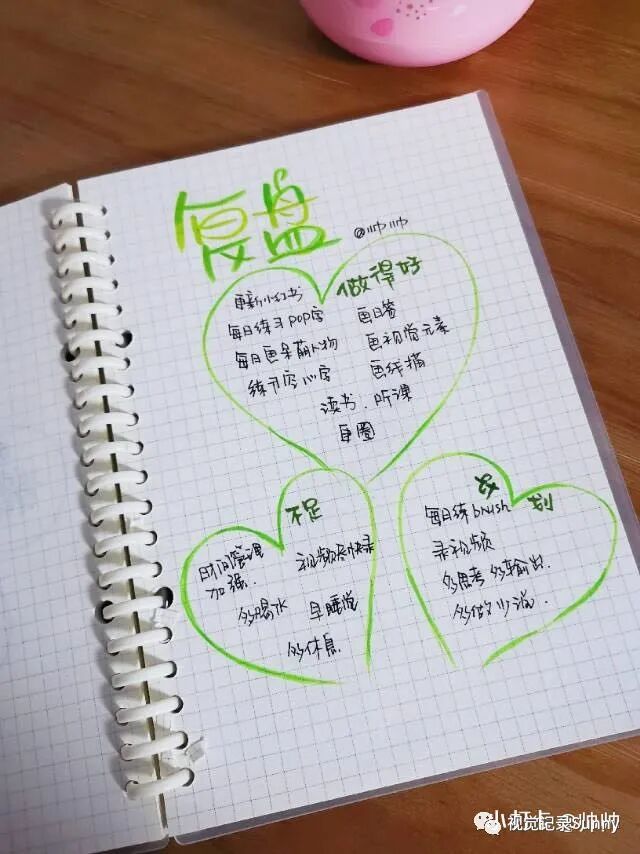 复盘
@帅帅
做得好
更新小红书
每日练习POP字 画日签
每日画呆萌人物 画视觉元素
练习写心字 画线描
读书.听课
不足
时间管理
加强.
多喝水 早睡觉
多休息
划
每日练brush
录视频
多思考 多输出.
多做少说.
小打卡 @帅帅
视觉记录Sunny